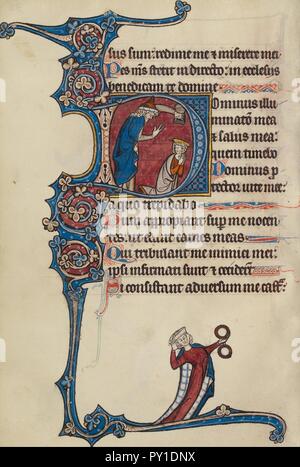 sus sum: redime me & miserere mei
Pes ms stetit in directo: in ecclesiis
benedicam te domine
Dominus illu
minatio mea
& salus mea:
quem timebo
Dominus p
tector vite mee:
a quo trepidabo
Dum appropiant sup me nocen
tes: ut edant carnes meas
Qui tribulant me inimici mei:
ipsi infirmati sunt & ceciderunt
Si consistant adversum me cast
alamy
PY1DNX